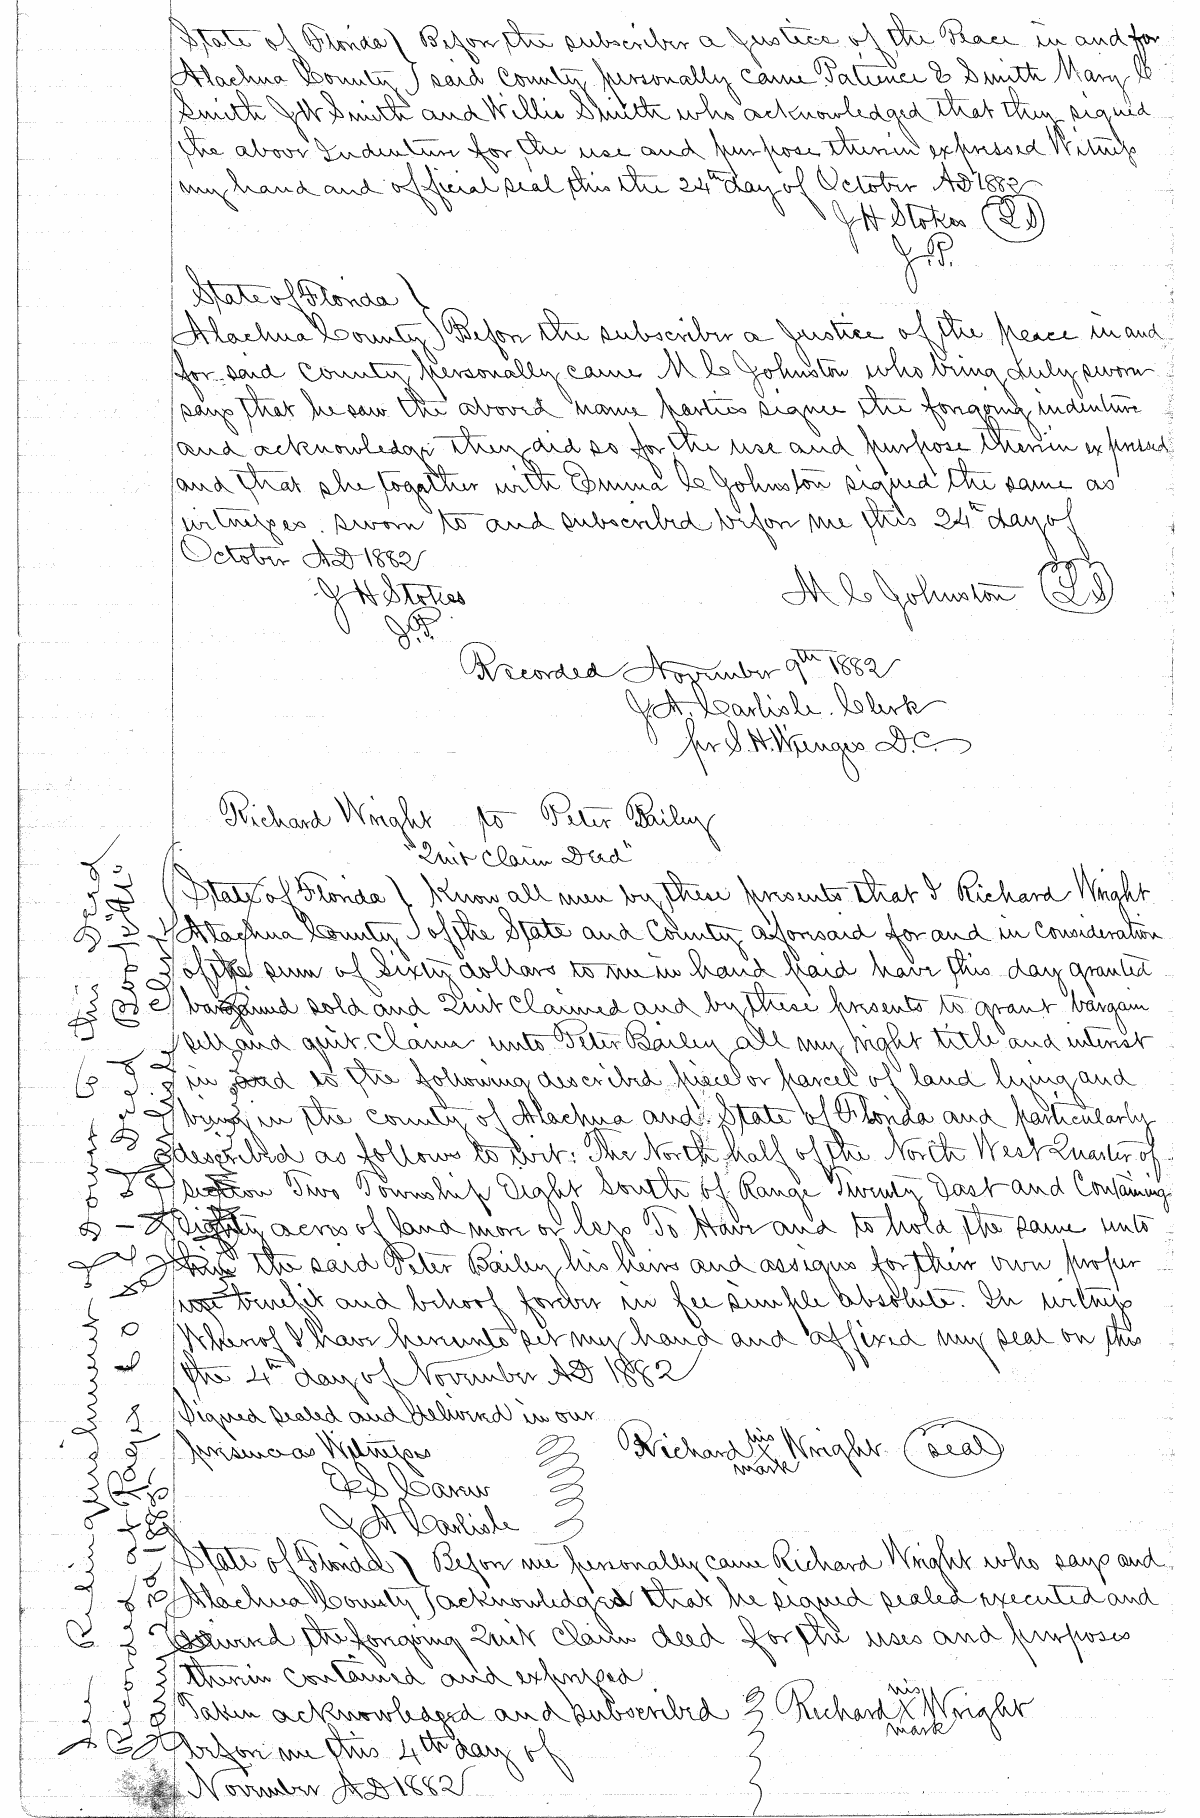 State of Florida } Before the subscriber a Justice of the Peace in and for
Alachua County } said County personally came Patience E Smith Mary C
Smith J W Smith and Willie Smith who acknowledged that they signed
the above Indenture for the use and purpose therein expressed Witness
my hand and official seal this the 24th day of October AD 1882
J H Stokes (LS)
J.P.
State of Florida }
Alachua County } Before the subscriber a Justice of the peace in and
for said County personally came M C Johnston who being duly sworn
says that he saw the aboved name parties signee the forgoing indenture
and acknowledge they did so for the use and purpose therein expressed
and that she togather with Emma C Johnston signed the same as
witnesses. sworn to and subscribed before me this 24th day of
October AD 1882
J H Stokes M C Johnston (LS)
J.P.
Recorded November 9th 1882
J. A. Carlisle. Clerk
per S. H. Wienges D.C.
Richard Wright to Peter Bailey
"Quit Claim Deed"
State of Florida } Know all men by these presents that I Richard Wright
Alachua County } of the State and County aforesaid for and in consideration
of the sum of Sixty dollars to me in hand paid have this day granted
bargained sold and Quit Claimed and by these presents to grant bargain
sell and quit Claim unto Peter Bailey all my right title and interest
in and to the following described piece or parcel of land lying and
being in the county of Alachua and State of Florida and particularly
described as follows to wit: The North half of the North West Quarter of
section Two Township Eight South of Range Twenty East and Containing
Eighty acres of land more or less To Have and to hold the same unto
him the said Peter Bailey his heirs and assigns for their own proper
use benefit and behoof forever in fee simple absolute. In witness
Whereof I have hereunto set my hand and affixed my seal on this
the 4th day of November AD 1882
Signed sealed and delivered in our
presence as Witness
Richard his X mark Wright (seal)
J A Carlisle
State of Florida } Before me personally came Richard Wright who says and
Alachua County } acknowledged that he signed sealed executed and
delivered the forgoing Quit Claim deed for the uses and purposes
therein contained and expressed
Taken acknowledged and subscribed Richard his X mark Wright
before me this 4th day of
November AD 1882